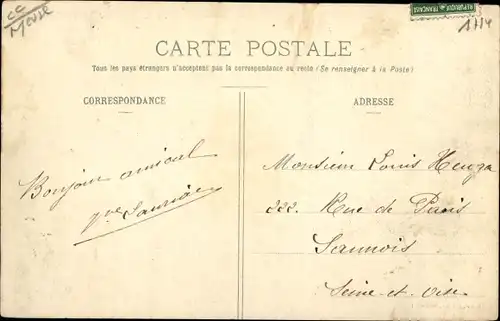 CC
Meuse
RÉPUBLIQUE FRANÇAISE
CARTE POSTALE
Tous les pays étrangers n'acceptent pas la correspondance au recto (Se renseigner à la Poste)
CORRESPONDANCE
ADRESSE
Bonjour amical
Monsieur Louis
222. Rue de Paris
Sannois
Seine-et-Oise